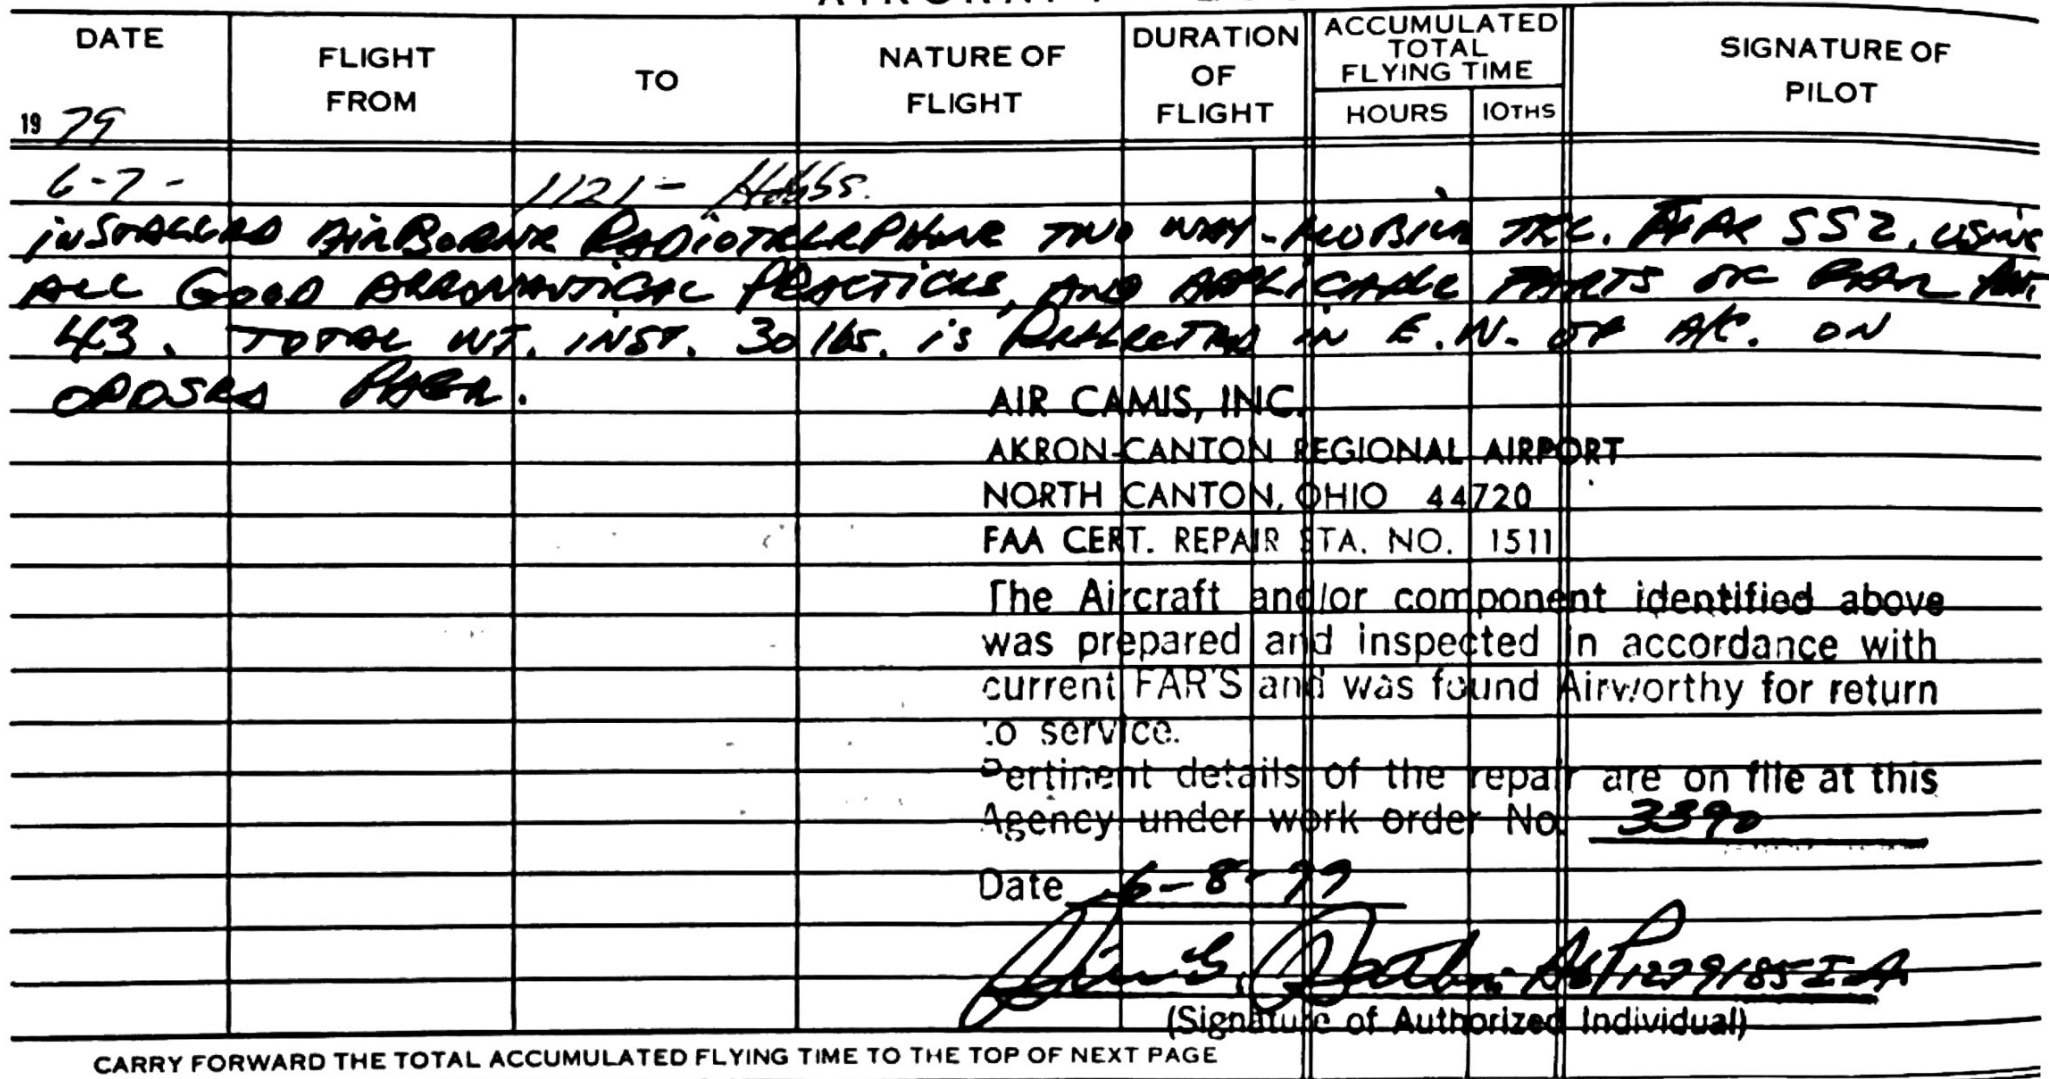 DATE
FLIGHT FROM
TO
NATURE OF FLIGHT
DURATION OF FLIGHT
ACCUMULATED TOTAL FLYING TIME
HOURS
10THS
SIGNATURE OF PILOT
19 79
6-7- 1121- Hobbs.
INSTALLED AIRBORNE RADIOTELEPHONE TWO WAY-MOBILE TEL. 552, USING
ALL GOOD AERONAUTICAL PRACTICES, AND APPLICABLE PARTS OF FAR
43. TOTAL WT. INST. 30 lbs. is REFLECTED IN E.W. OF A/C. ON
PAGE.
AIR CAMIS, INC.
AKRON-CANTON REGIONAL AIRPORT
NORTH CANTON, OHIO 44720
FAA CERT. REPAIR STA. NO. 1511
The Aircraft and/or component identified above
was prepared and inspected in accordance with
current FAR'S and was found Airworthy for return
to service.
Pertinent details of the repair are on file at this
Agency under work order No. 3390
Date 6-8-79
A&P1279185IA
(Signature of Authorized Individual)
CARRY FORWARD THE TOTAL ACCUMULATED FLYING TIME TO THE TOP OF NEXT PAGE